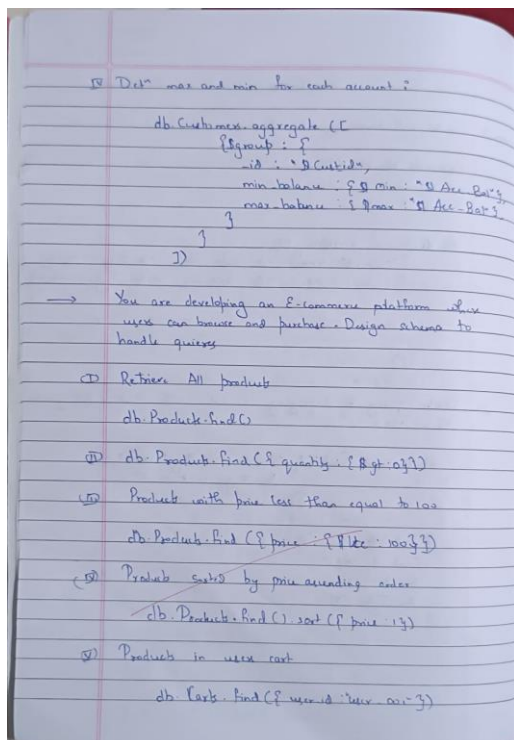 IV Detⁿ max and min for each account :
db.Customers.aggregate ([
{$group : {
_id : "$Custid",
min_balance : {$min : "$Acc_Bal"},
max_balance : {$max : "$Acc_Bal"}
}
}
])
→ You are developing an E-commerce platform where
users can browse and purchase. Design schema to
handle quieres
I Retrieve All products
db.Products.find()
II db.Products.find({quantity : {$gt:0}})
III Products with price less than equal to 100
db.Products.find ({price : {$lte : 100}})
IV Products sorted by price ascending order
db.Products.find().sort({price : 1})
V Products in users cart
db.Carts.find({user_id :